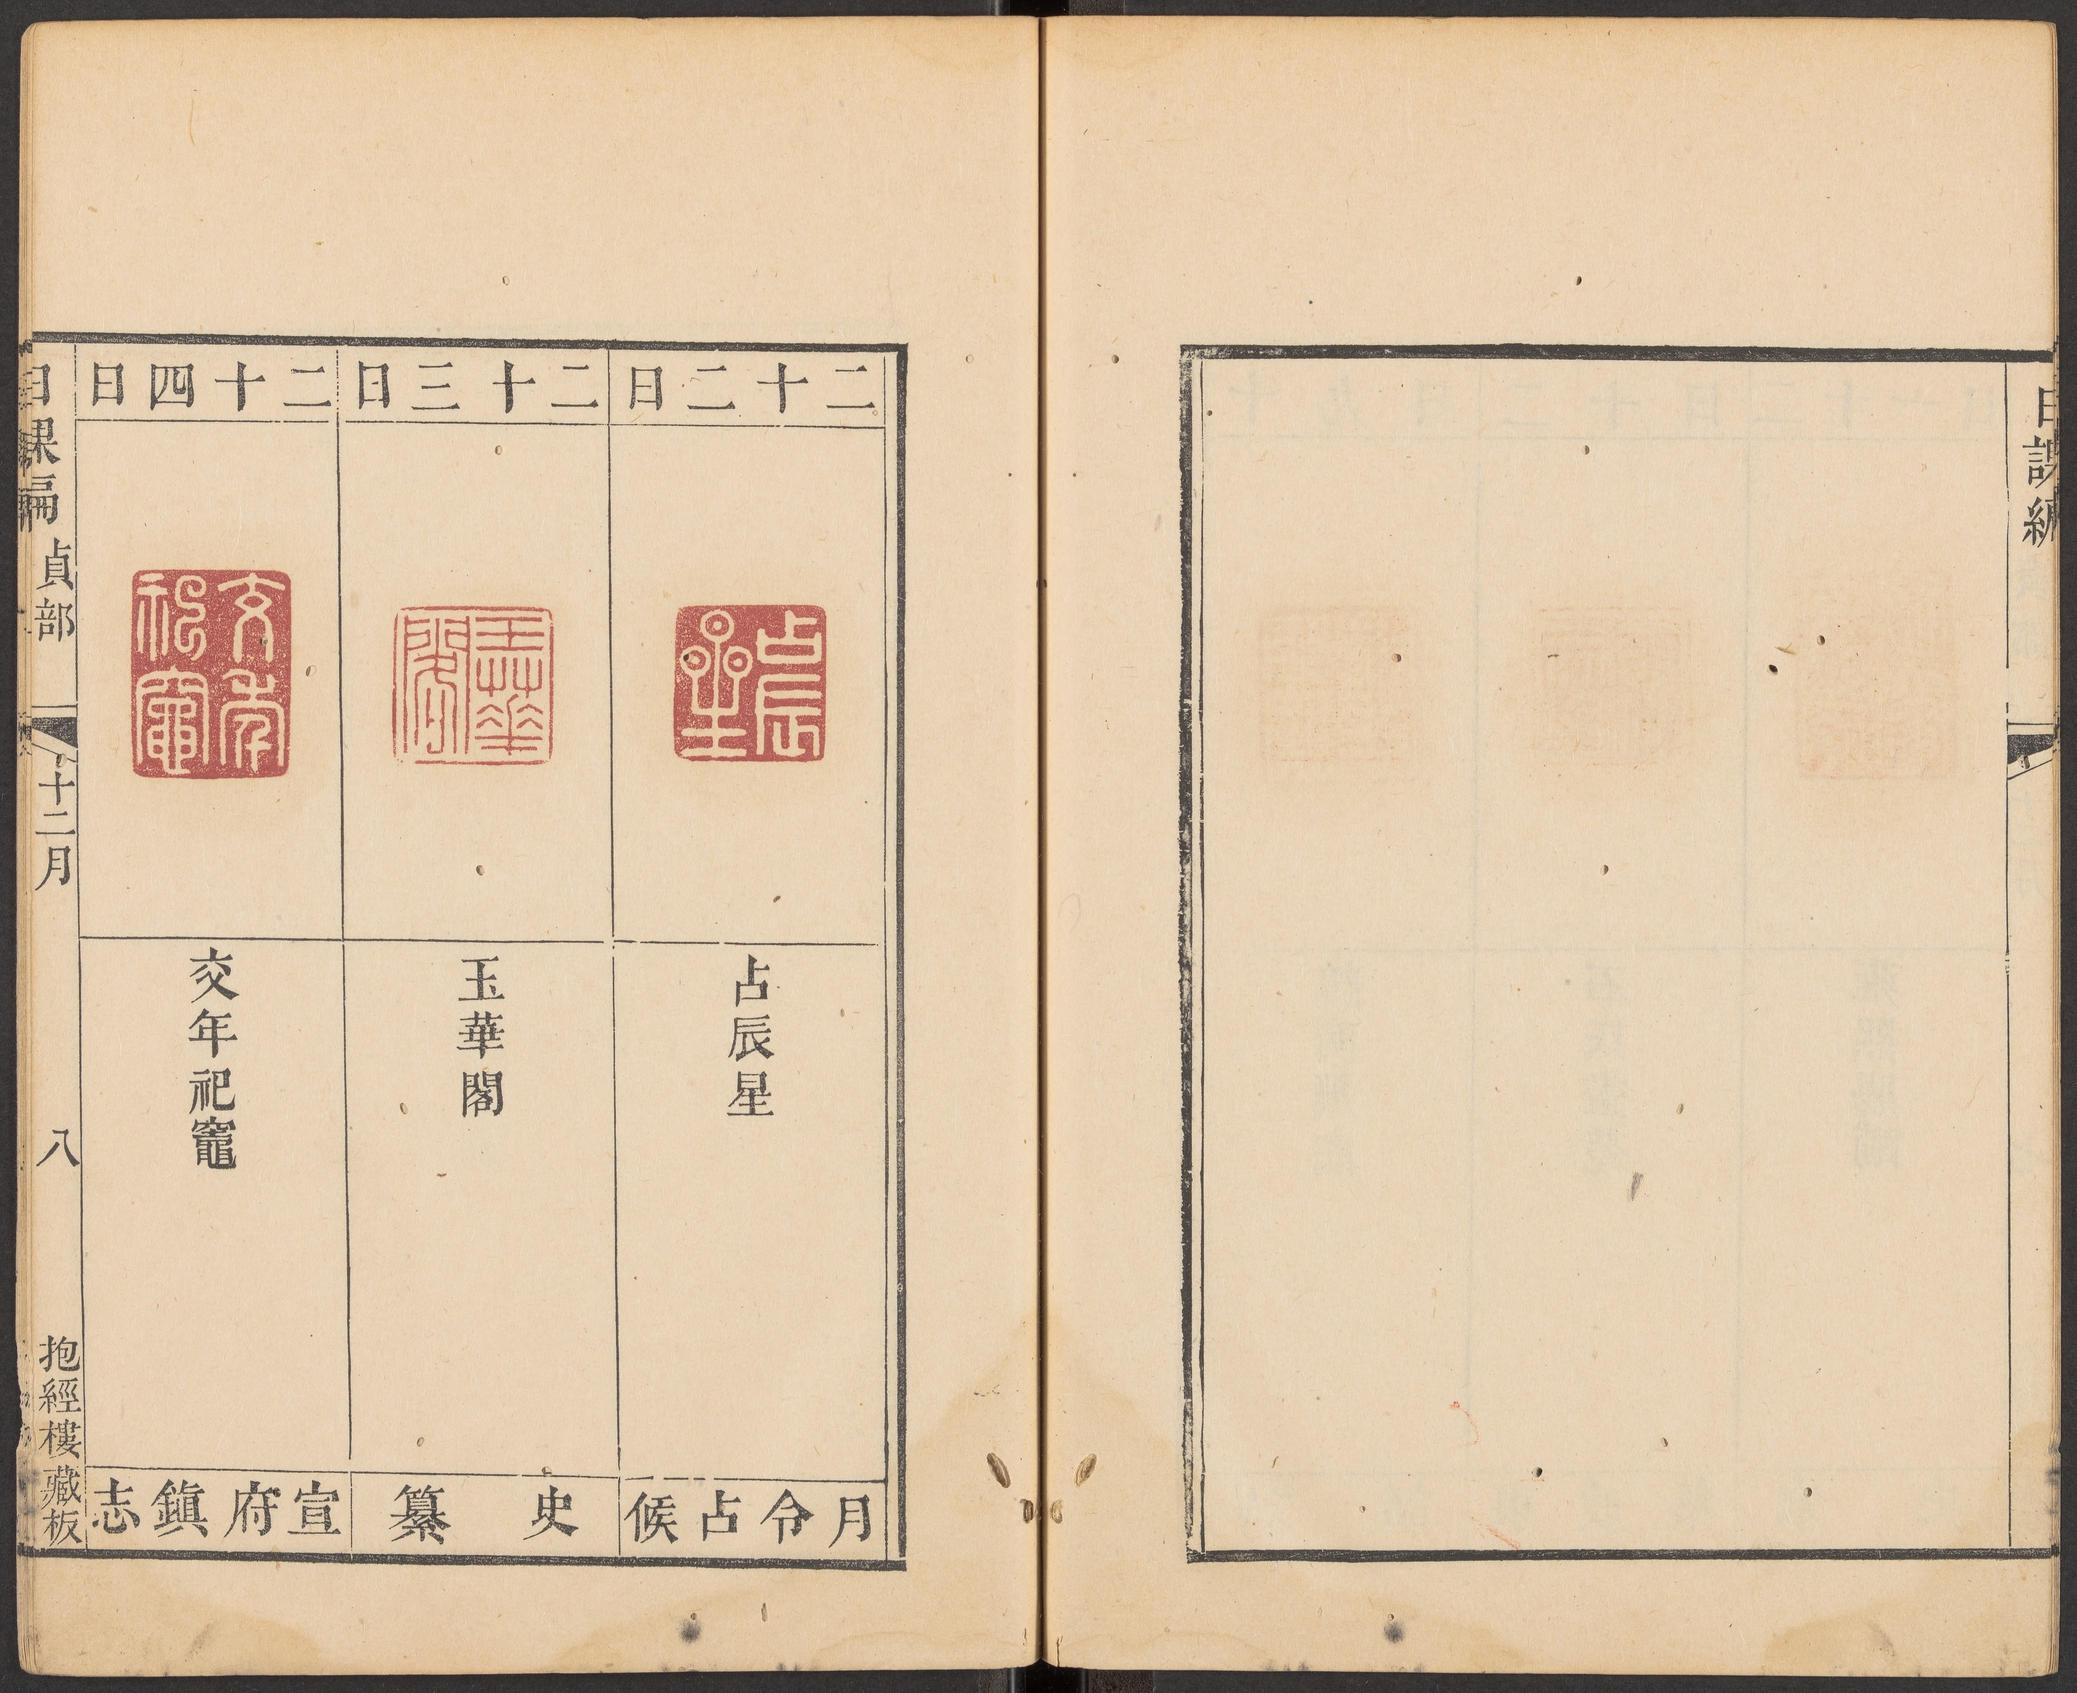 日課編
二十二日
占辰星
占辰星
月令占候
二十三日
玉華閣
玉華閣
史纂
二十四日
交年祀竈
交年祀竈
宣府鎮志
日課編
貞部
十二月
八
抱經樓藏板